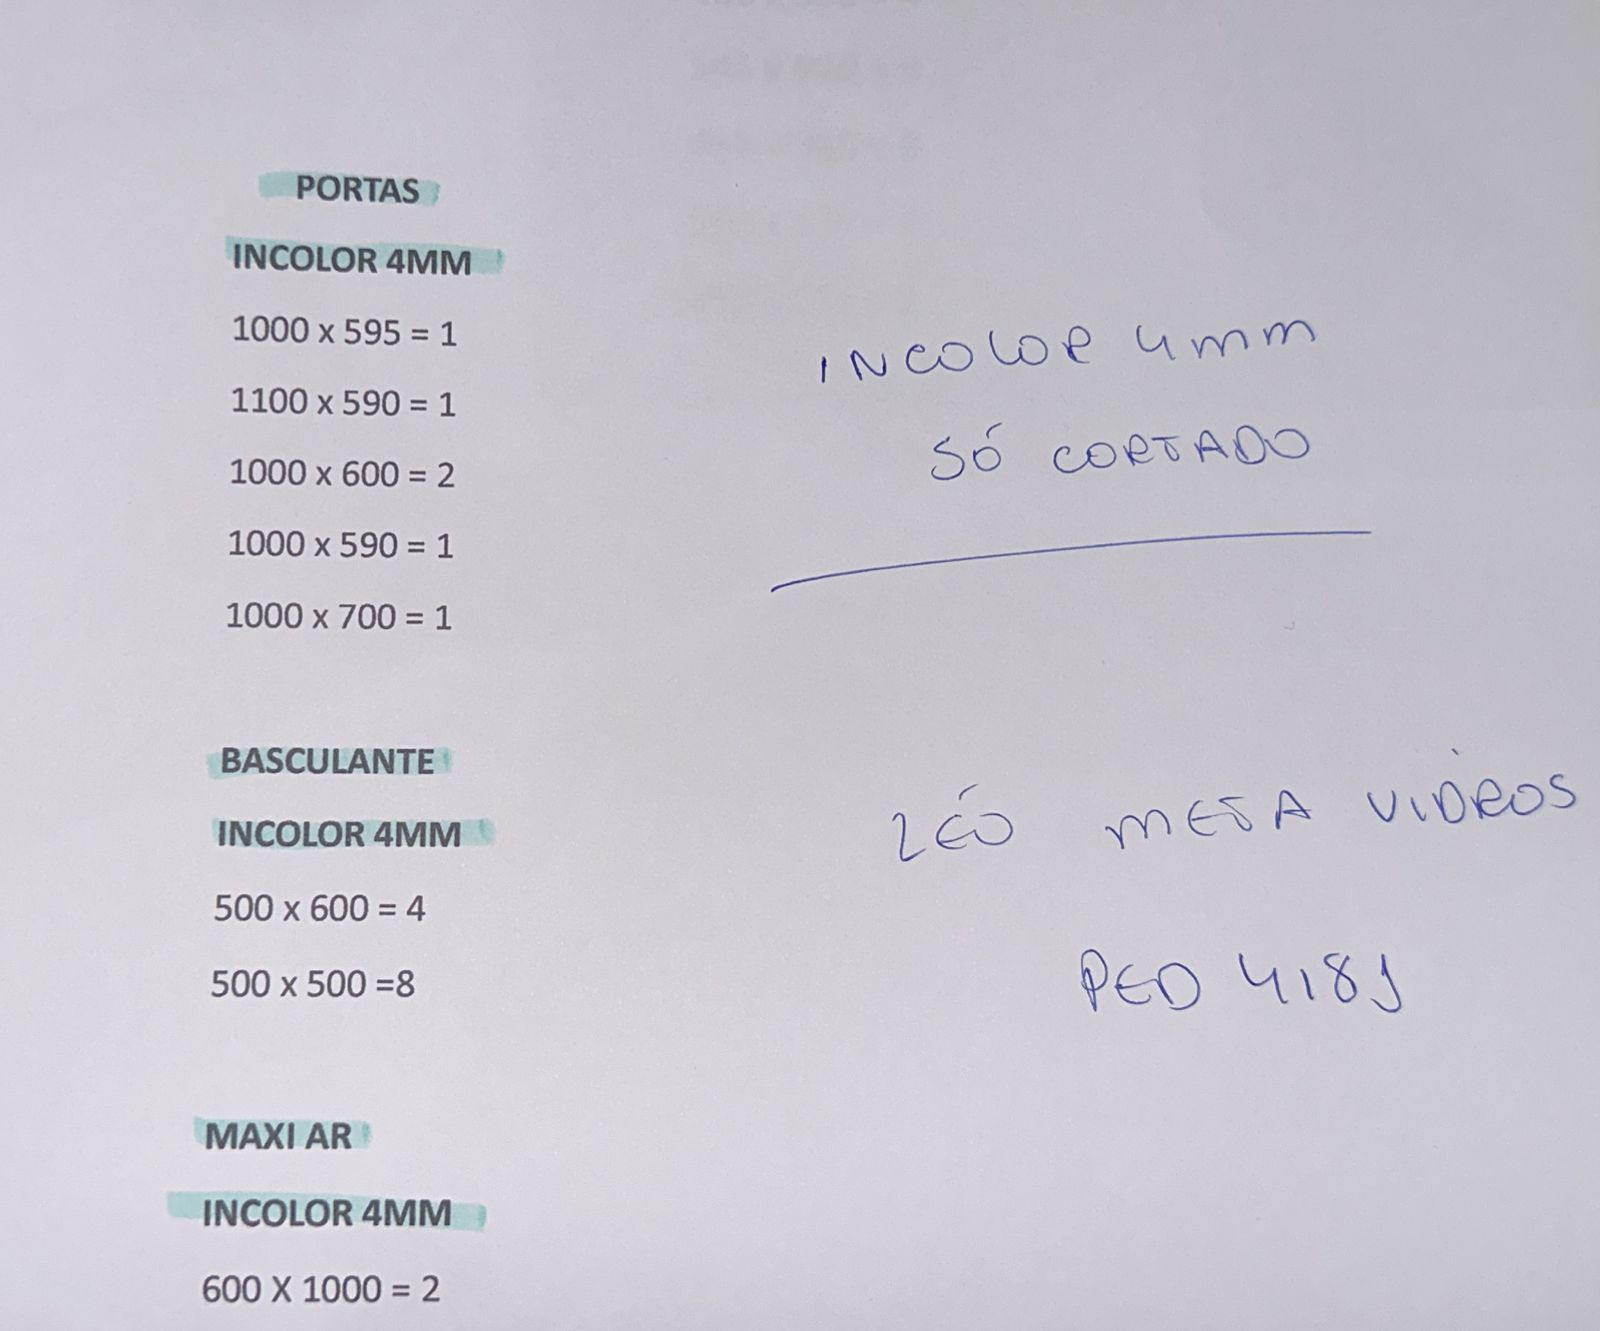 PORTAS
INCOLOR 4MM
1000 x 595 = 1
1100 x 590 = 1
1000 x 600 = 2
1000 x 590 = 1
1000 x 700 = 1
INCOLOR 4mm
SÓ CORTADO
BASCULANTE
INCOLOR 4MM
500 x 600 = 4
500 x 500 =8
LÉO META VIDROS
PED
MAXI AR
INCOLOR 4MM
600 X 1000 = 2